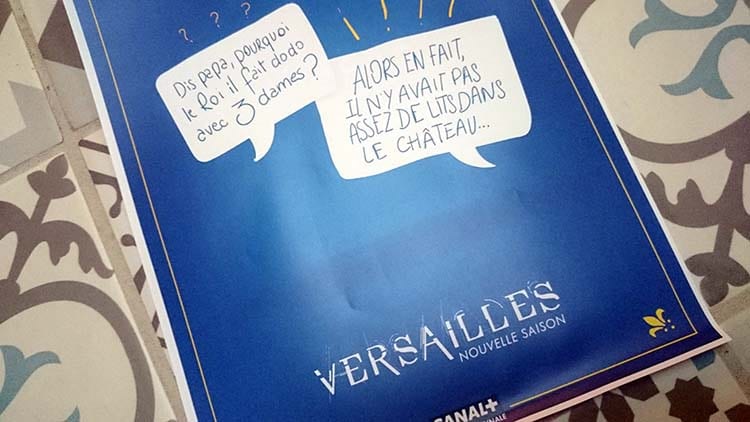 ? ? ?
Dis papa, pourquoi
le Roi il fait dodo
avec 3 dames ?
ALORS EN FAIT,
IL N'Y AVAIT PAS
ASSEZ DE LITS DANS
LE CHÂTEAU...
VERSAILLES
NOUVELLE SAISON
CANAL+